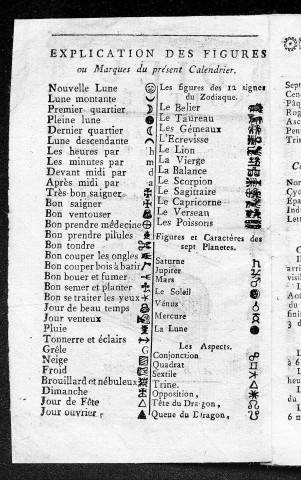 EXPLICATION DES FIGURES
ou Marques du présent Calendrier.
Nouvelle Lune
Lune montante
Premier quartier
Pleine lune
Dernier quartier
Lune descendante
Les heures par h
Les minutes par m
Devant midi par d
Après midi par a
Très-bon saigner
Bon saigner
Bon ventouser
Bon prendre médecine
Bon prendre pilules
Bon tondre
Bon couper les ongles
Bon couper bois à batir
Bon bouer et fumer
Bon semer et planter
Bon se traiter les yeux
Jour de beau temps
Jour venteux
Pluie
Tonnerre et éclairs
Grêle G
Neige
Froid
Brouillard et nébuleux
Dimanche
Jour de Fête
Jour ouvrier
Les figures des 12 signes
du Zodiaque.
Le Belier
Le Taureau
Les Gémeaux
L'Ecrevisse
Le Lion
La Vierge
La Balance
Le Scorpion
Le Sagittaire
Le Capricorne
Le Verseau
Les Poissons
Figures et Caractères des
sept Planetes.
Saturne ♄
Jupiter ♃
Mars ♂
Le Soleil
Vénus ♀
Mercure ☿
La Lune
Les Aspects.
Conjonction ☌
Quadrat □
Sextile
Trine. △
Opposition, ☍
Tête du Dragon, ☊
Queue du Dragon, ☋